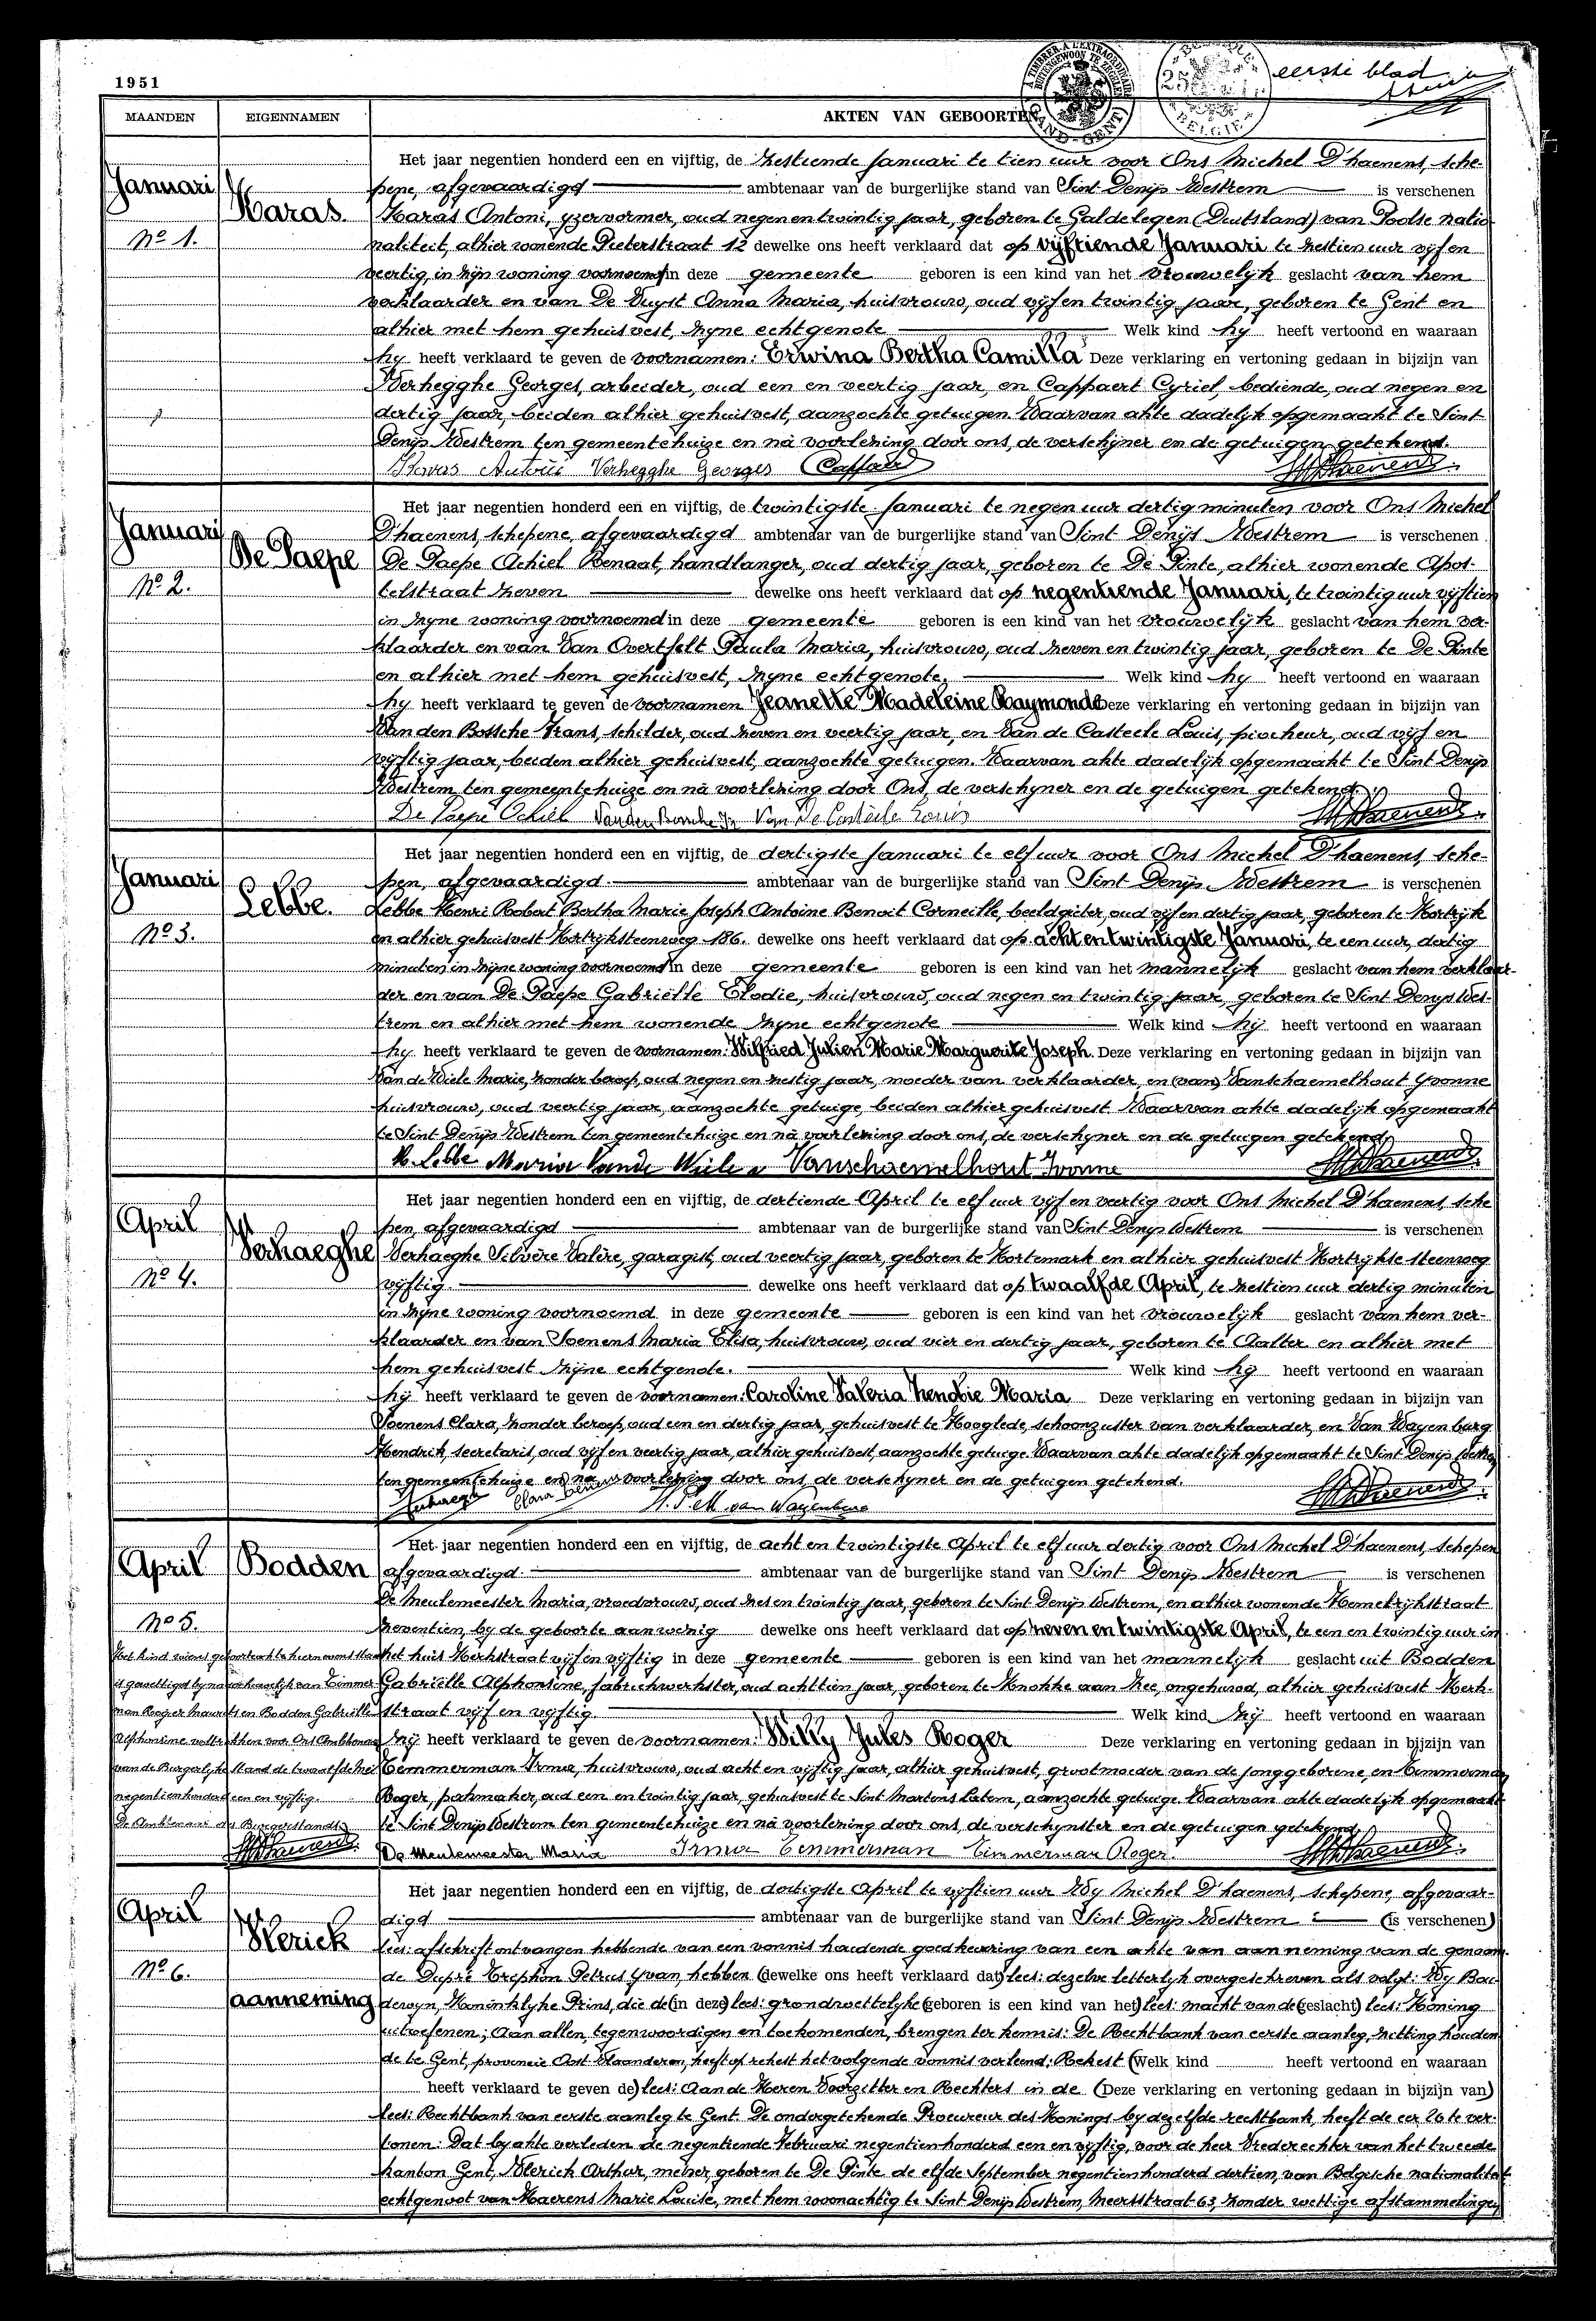 1951
eerste blad
MAANDEN EIGENNAMEN AKTEN VAN GEBOORTEN
Januari
Haras.
No 1.
Het jaar negentien honderd een en vijftig, de zestiende Januari te tien uur voor Ons Michel D'haenens, sche-
pene, afgevaardigd ambtenaar van de burgerlijke stand van Sint Denijs Westrem is verschenen
Haras Antoni, yzervormer, oud negen en twintig jaar, geboren te Galdelegen (Duitsland) van Poolse natio-
naliteit, alhier wonende Pieterstraat 12 dewelke ons heeft verklaard dat op vijftiende Januari te zestien uur vijf en
veertig, in zijn woning voornoemd in deze gemeente geboren is een kind van het vrouwelijk geslacht van hem
verklaarder en van De Vuyst Anna Maria, huisvrouw, oud vijf en twintig jaar, geboren te Gent en
alhier met hem gehuisvest, zyne echtgenote Welk kind hy heeft vertoond en waaraan
hy heeft verklaard te geven de voornamen: Erwina Bertha Camilla Deze verklaring en vertoning gedaan in bijzijn van
Verhegghe Georges, arbeider, oud een en veertig jaar, en Cappaert Cyriel, bediende, oud negen en
dertig jaar, beiden alhier gehuisvest, aanzochte getuigen. Waarvan akte dadelijk opgemaakt te Sint
Denijs Westrem ten gemeentehuize en nà voorlezing door ons, de verschijner en de getuigen getekend.
Verhegghe Georges
Januari
De Paepe
No 2.
Het jaar negentien honderd een en vijftig, de twintigste Januari te negen uur dertig minuten voor Ons Michel
D'haenens, schepene, afgevaardigd ambtenaar van de burgerlijke stand van Sint Denijs Westrem is verschenen
De Paepe Achiel Benaat, handlanger, oud dertig jaar, geboren te De Pinte, alhier wonende Apos-
telstraat zeven dewelke ons heeft verklaard dat op negentiende Januari, te twintig uur vijftien
in zyne woning voornoemd in deze gemeente geboren is een kind van het vrouwelijk geslacht van hem ver-
klaarder en van Van Overtfelt Paula Maria, huisvrouw, oud zeven en twintig jaar, geboren te De Pinte
en alhier met hem gehuisvest, zyne echtgenote. Welk kind hy heeft vertoond en waaraan
hy heeft verklaard te geven de voornamen Jeanette Madeleine Raymonde Deze verklaring en vertoning gedaan in bijzijn van
Van den Bossche Frans, schilder, oud zeven en veertig jaar, en Van de Casteele Louis, piocheur, oud vijf en
vijftig jaar, beiden alhier gehuisvest, aanzochte getuigen. Waarvan akte dadelijk opgemaakt te Sint Denijs
Westrem ten gemeentehuize en nà voorlezing door Ons, de verschyner en de getuigen getekend.
De Paepe Achiel Vanden Bossche Fr Van De Casteele Louis
Januari
Lebbe.
No 3.
Het jaar negentien honderd een en vijftig, de dertigste Januari te elf uur voor Ons Michel D'haenens, sche-
pen, afgevaardigd ambtenaar van de burgerlijke stand van Sint Denijs Westrem is verschenen
Lebbe Henri Robert Bertha Marie Joseph Antoine Benoit Corneille, beeldgieter, oud vijf en dertig jaar, geboren te Kortrijk
en alhier gehuisvest Kortrijksteenweg 186. dewelke ons heeft verklaard dat op acht en twintigste Januari, te een uur, dertig
minuten in zijne woning voornoemd in deze gemeente geboren is een kind van het mannelijk geslacht van hem verklaar-
der en van De Paepe Gabriëlle Elodie, huisvrouw, oud negen en twintig jaar, geboren te Sint Denijs Wes-
trem en alhier met hem wonende zyne echtgenote Welk kind hij heeft vertoond en waaraan
hy heeft verklaard te geven de voornamen: Wilfried Julien Marie Marguerite Joseph. Deze verklaring en vertoning gedaan in bijzijn van
Van de Wiele Marie, zonder beroep, oud negen en zestig jaar, moeder van verklaarder, en (van) Vanschaemelhout Yvonne
huisvrouw, oud veertig jaar, aanzochte getuige, beiden alhier gehuisvest. Waarvan akte dadelijk opgemaakt
te Sint Denijs Westrem ten gemeentehuize en nà voorlezing door ons, de verschyner en de getuigen getekend.
H. Lebbe Maria Vande Wiele Vanschaemelhout Ivonne
April
Verhaeghe
No 4.
Het jaar negentien honderd een en vijftig, de dertiende April te elf uur vijf en veertig voor Ons Michel D'haenens, sche-
pen, afgevaardigd ambtenaar van de burgerlijke stand van Sint Denijs Westrem is verschenen
Verhaeghe Silvère Valère, garagist, oud veertig jaar, geboren te Kortemark en alhier gehuisvest Kortrijkse steenweg
vijftig dewelke ons heeft verklaard dat op twaalfde April, te zestien uur dertig minuten
in zyne woning voornoemd in deze gemeente geboren is een kind van het vrouwelijk geslacht van hem ver-
klaarder en van Soenens Maria Elisa, huisvrouw, oud vier en dertig jaar, geboren te Aalter en alhier met
hem gehuisvest zijne echtgenote. Welk kind hij heeft vertoond en waaraan
hij heeft verklaard te geven de voornamen: Caroline Valeria Zenobie Maria Deze verklaring en vertoning gedaan in bijzijn van
Soenens Clara, zonder beroep, oud een en dertig jaar, gehuisvest te Hooglede, schoonzuster van verklaarder, en Van Wayenburg
Hendrik, secretaris, oud vijf en veertig jaar, alhier gehuisvest, aanzochte getuige. Waarvan akte dadelijk opgemaakt te Sint Denijs Westrem
ten gemeentehuize en na voorlezing door ons, de verschyner en de getuigen getekend.
van Wayenburg
April
Bodden
No 5.
Het kind wiens geboorteakte hiernevens staat
is gewettigd by naar huwelijk van Timmer-
man Rogier Maurits en Bodden Gabriëlle
Alphonsine voltrokken voor Ons Ambtenaar
van de Burgerlijke stand de twaalfde Mei
negentienhonderd een en vijftig.
De Ambtenaar des Burgerstands,
Het jaar negentien honderd een en vijftig, de acht en twintigste April te elf uur dertig voor Ons Michel D'haenens, schepen
afgevaardigd ambtenaar van de burgerlijke stand van Sint Denijs Westrem is verschenen
De Meulemeester Maria, vroedvrouw, oud zes en twintig jaar, geboren te Sint Denijs Westrem, en alhier wonende Hemelrijkstraat
zeventien, by de geboorte aanwezig dewelke ons heeft verklaard dat op zeven en twintigste April, te een en twintig uur in
het huis Kerkstraat vijf en vijftig in deze gemeente geboren is een kind van het mannelijk geslacht uit Bodden
Gabriëlle Alphonsine, fabriekwerkster, oud achttien jaar, geboren te Knokke aan Zee, ongehuwd, alhier gehuisvest Kerk-
straat vijf en vijftig Welk kind zij heeft vertoond en waaraan
zij heeft verklaard te geven de voornamen: Willy Jules Roger Deze verklaring en vertoning gedaan in bijzijn van
Temmerman Irma, huisvrouw, oud acht en vijftig jaar, alhier gehuisvest, grootmoeder van de jonggeborene, en Timmerman
Roger, pakmaker, oud een en twintig jaar, gehuisvest te Sint Martens Latem, aanzochte getuige. Waarvan akte dadelijk opgemaakt
te Sint Denijs Westrem ten gemeentehuize en nà voorlezing door ons, de verschynster en de getuigen getekend.
De Meulemeester Maria Irma Temmerman Timmerman Roger.
April
Vlerick
No 6.
aanneming
Het jaar negentien honderd een en vijftig, de dertigste April te vijftien uur Wy Michel D'haenens, schepene, afgevaar-
digd ambtenaar van de burgerlijke stand van Sint Denijs Westrem (is verschenen)
lees: afschrift ontvangen hebbende van een vonnis houdende goedkeuring van een akte van aanneming van de genaam-
de Dupré Trephon Petrus Yvan, hebben (dewelke ons heeft verklaard dat) lees: dezelve letterlijk overgeschreven als volgt: Wy Bou-
dewyn, Koninklyke Prins, die de (in deze) lees: grondwettelyke (geboren is een kind van het) lees: macht van de (geslacht) lees: Koning
uitoefenen; Aan allen, tegenwoordigen en toekomenden, brengen ter kennis: De Rechtbank van eerste aanleg, zitting houden-
de te Gent, provincie Oost Vlaanderen, heeft op rekest het volgende vonnis verleend: Rekest (Welk kind heeft vertoond en waaraan
heeft verklaard te geven de) lees: Aan de Heren Voorzitter en Rechters in de (Deze verklaring en vertoning gedaan in bijzijn van)
lees: Rechtbank van eerste aanleg te Gent. De ondergetekende Procureur des Konings by dezelfde rechtbank, heeft de eer U te ver-
tonen: Dat by akte verleden de negentiende Februari negentienhonderd een en vijftig, voor de heer Vrederechter van het tweede
kanton Gent, Vlerick Arthur, metser, geboren te De Pinte de elfde September negentienhonderd dertien, van Belgische nationaliteit
echtgenoot van Haerens Marie Louise, met hem woonachtig te Sint Denijs Westrem, Meersstraat 63, zonder wettige afstammelingen